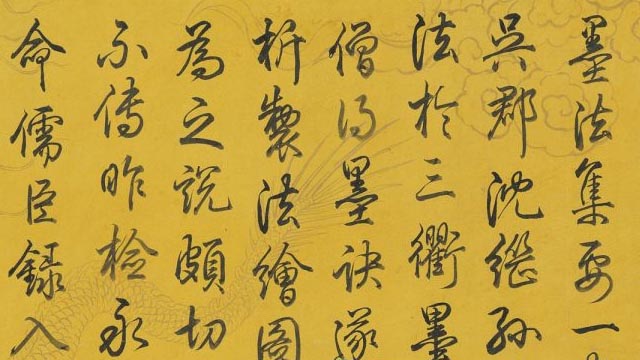 墨法集要一
吳郡沈繼孫
法於三衢墨
僧得墨訣遂
析製法繪圖
為之說頗切
不傳昨檢永
命儒臣錄入